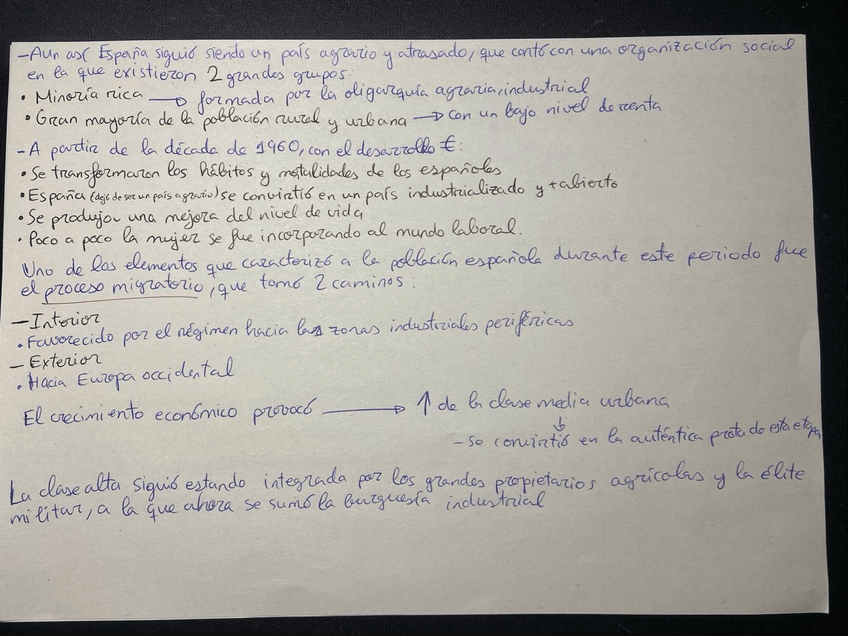 -Aun así España siguió siendo un país agrario y atrasado, que contó con una organización social
en la que existieron 2 grandes grupos:
• Minoría rica → formada por la oligarquía agraria, industrial
• Gran mayoría de la población rural y urbana → con un bajo nivel de renta
- A partir de la década de 1960, con el desarrollo €:
• Se transformaron los hábitos y metalidades de los españoles
• España (dejó de ser un país agrario) se convirtió en un país industrializado y + abierto
• Se produjo una mejora del nivel de vida
• Poco a poco la mujer se fue incorporando al mundo laboral.
Uno de los elementos que caracterizó a la población española durante este periodo fue
el proceso migratorio, que tomó 2 caminos:
- Interior
• Favorecido por el régimen hacia las zonas industriales periféricas
- Exterior
• Hacia Europa occidental
El crecimiento económico provocó → ↑ de la clase media urbana
↓
- Se convirtió en la auténtica prota de esta etapa
La clase alta siguió estando integrada por los grandes propietarios agrícolas y la élite
militar, a la que ahora se sumó la burguesía industrial